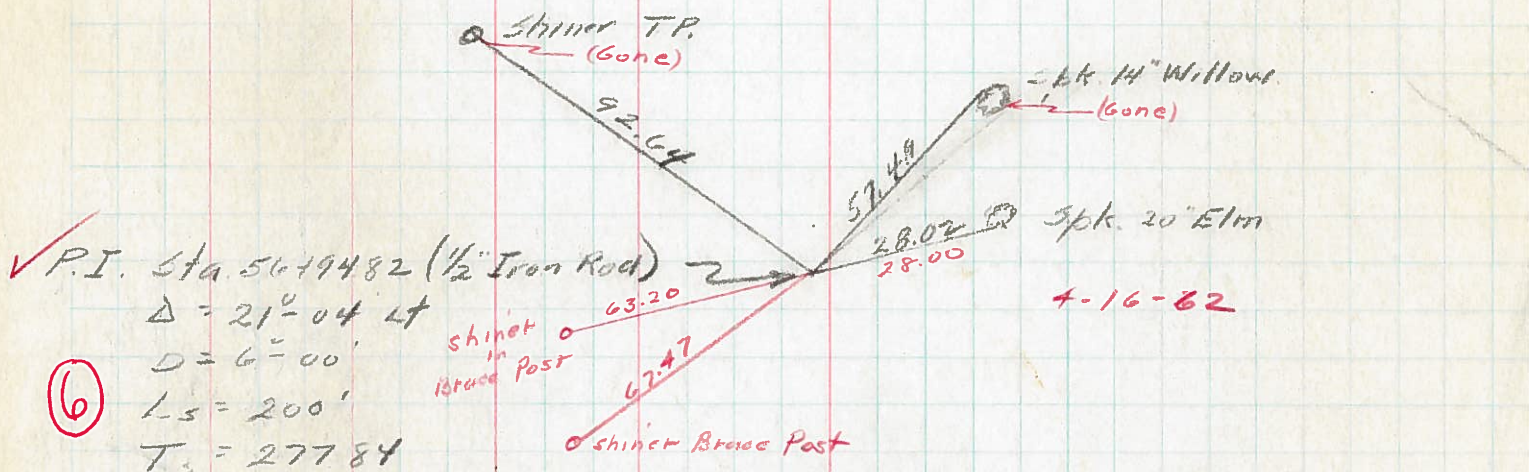 Shiner TP.
(Gone)
Spk. 14" Willow
(Gone)
92.64
57.49
28.02
28.00
Spk. 20" Elm
4-16-62
P.I. Sta. 561+94.82 (1/2" Iron Rod)
Δ = 21°-04' Lt
D = 6°-00'
Ls = 200'
Ts = 277.84
6
63.20
shiner
in
Brace Post
67.47
shiner Brace Post